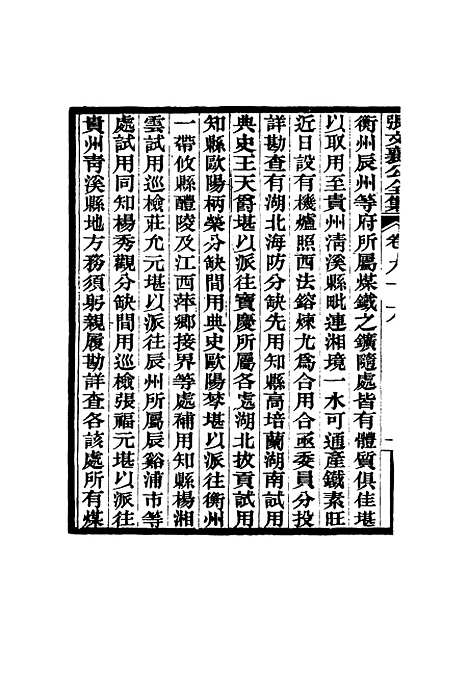 張文襄公全集 卷九十八 一
衡州辰州等府所屬煤鐵之鑛隨處皆有體質俱佳堪
以取用至貴州淸溪縣毗連湘境一水可通產鐵素旺
近日設有機爐照西法鎔煉尤爲合用合亟委員分投
詳勘查有湖北海防分缺先用知縣高培蘭湖南試用
典史王天爵堪以派往寶慶所屬各處湖北拔貢試用
知縣歐陽柄榮分缺間用典史歐陽棽堪以派往衡州
一帶攸縣醴陵及江西萍鄉接界等處補用知縣楊湘
雲試用巡檢莊允元堪以派往辰州所屬辰谿浦市等
處試用同知楊秀觀分缺間用巡檢張福元堪以派往
貴州靑溪縣地方務須躬親履勘詳查各該處所有煤